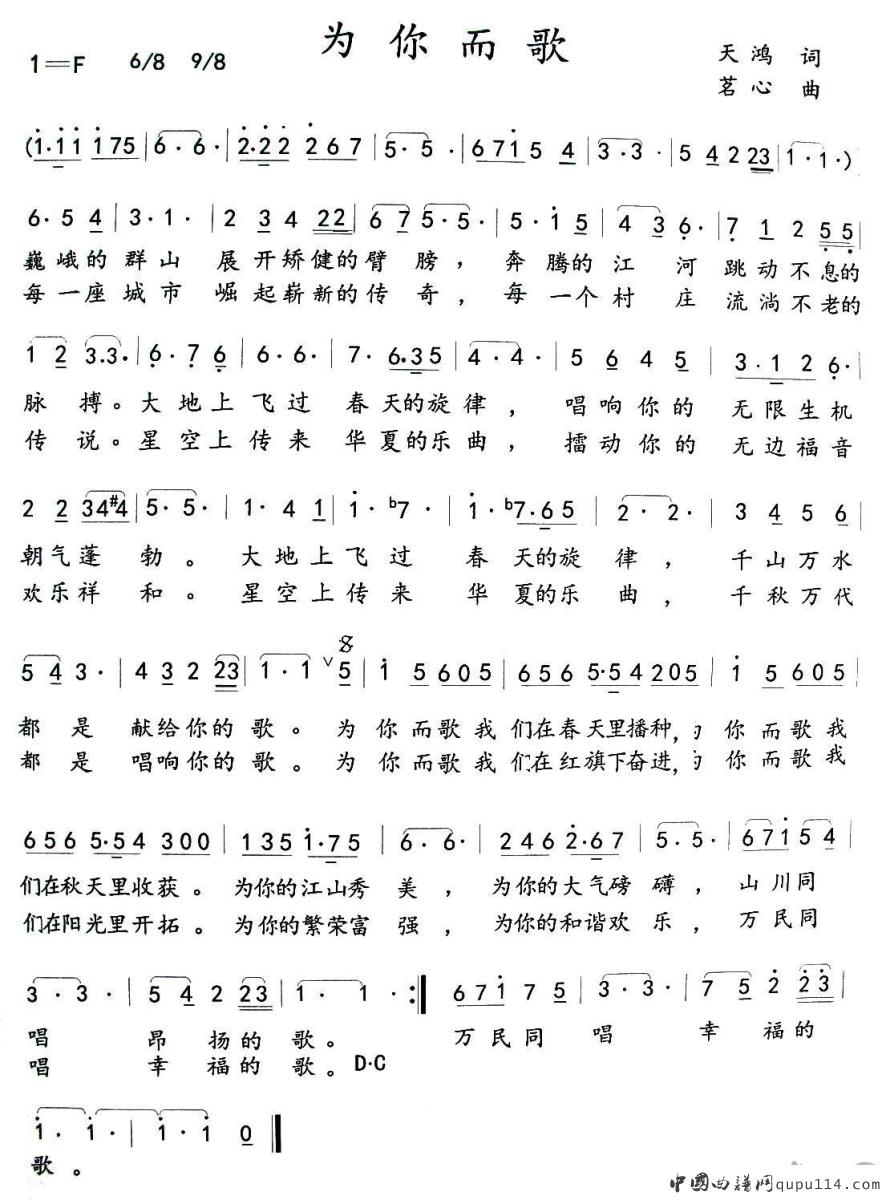 为你而歌
1=F 6/8 9/8
天鸿 词
茗心 曲
(1·11 175|6·6·|2·22 267|5·5·|6715 4|3·3·|54223|1·1·)
6·5 4|3·1·|2 3 4 22|6 7 5·5·|5·1 5|4 3 6·|7 1 2 55
巍峨的群山 展开矫健的臂膀，奔腾的江河跳动不息的
每一座城市 崛起崭新的传奇，每一个村庄流淌不老的
1 2 3·3·|6·7 6|6·6·|7·6·35|4·4·|5 6 4 5|3·1 2 6·
脉搏。大地上飞过 春天的旋律，唱响你的无限生机
传说。星空上传来 华夏的乐曲，擂动你的无边福音
2 2 34#4|5·5·|1·4 1|1·b7·|1·b7·65|2·2·|3 4 5 6
朝气蓬勃。大地上飞过 春天的旋律，千山万水
欢乐祥和。星空上传来 华夏的乐曲，千秋万代
5 4 3·|4 3 2 23|1·1 ∨5|1 5605|656 5·54 205|1 5605
都是 献给你的歌。为你而歌我们在春天里播种，为你而歌我
都是 唱响你的歌。为你而歌我们在红旗下奋进，为你而歌我
656 5·54 300|135 1·75|6·6·|246 2·67|5·5·|6715 4
们在秋天里收获。为你的江山秀美，为你的大气磅礴，山川同
们在阳光里开拓。为你的繁荣富强，为你的和谐欢乐，万民同
3·3·|5 4 2 23|1·1·:‖ 671 7 5|3·3·|7 5 2 23
唱 昂扬的歌。 万民同唱 幸福的
唱 幸福的歌。D·C
1·1·|1·1 0‖
歌。
中国曲谱网qupu114.com